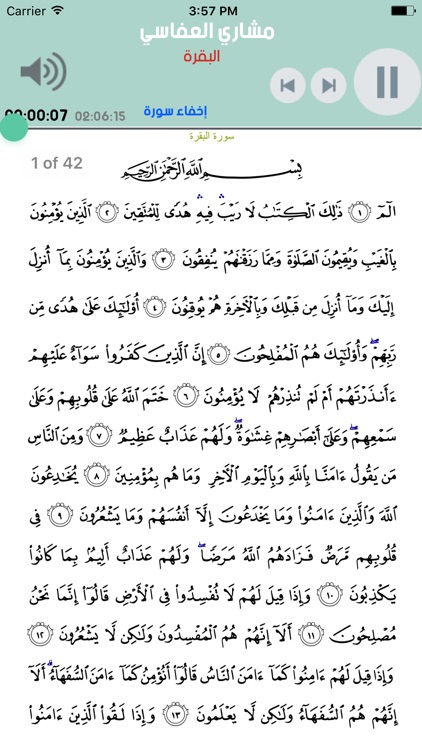 Carrier 3:57 PM
مشاري العفاسي
البقرة
00:00:07 02:06:15 إخفاء سورة
سورة البقرة
1 of 42
بِسْمِ ٱللَّهِ ٱلرَّحْمَٰنِ ٱلرَّحِيمِ
الٓمٓ ١ ذَٰلِكَ ٱلْكِتَٰبُ لَا رَيْبَ ۛ فِيهِ ۛ هُدًى لِّلْمُتَّقِينَ ٢ ٱلَّذِينَ يُؤْمِنُونَ
بِٱلْغَيْبِ وَيُقِيمُونَ ٱلصَّلَوٰةَ وَمِمَّا رَزَقْنَٰهُمْ يُنفِقُونَ ٣ وَٱلَّذِينَ يُؤْمِنُونَ بِمَآ أُنزِلَ
إِلَيْكَ وَمَآ أُنزِلَ مِن قَبْلِكَ وَبِٱلْءَاخِرَةِ هُمْ يُوقِنُونَ ٤ أُو۟لَٰٓئِكَ عَلَىٰ هُدًى مِّن
رَّبِّهِمْ ۖ وَأُو۟لَٰٓئِكَ هُمُ ٱلْمُفْلِحُونَ ٥ إِنَّ ٱلَّذِينَ كَفَرُوا۟ سَوَآءٌ عَلَيْهِمْ
ءَأَنذَرْتَهُمْ أَمْ لَمْ تُنذِرْهُمْ لَا يُؤْمِنُونَ ٦ خَتَمَ ٱللَّهُ عَلَىٰ قُلُوبِهِمْ وَعَلَىٰ
سَمْعِهِمْ ۖ وَعَلَىٰٓ أَبْصَٰرِهِمْ غِشَٰوَةٌ ۖ وَلَهُمْ عَذَابٌ عَظِيمٌ ٧ وَمِنَ ٱلنَّاسِ
مَن يَقُولُ ءَامَنَّا بِٱللَّهِ وَبِٱلْيَوْمِ ٱلْءَاخِرِ وَمَا هُم بِمُؤْمِنِينَ ٨ يُخَٰدِعُونَ
ٱللَّهَ وَٱلَّذِينَ ءَامَنُوا۟ وَمَا يَخْدَعُونَ إِلَّآ أَنفُسَهُمْ وَمَا يَشْعُرُونَ ٩ فِى
قُلُوبِهِم مَّرَضٌ فَزَادَهُمُ ٱللَّهُ مَرَضًا ۖ وَلَهُمْ عَذَابٌ أَلِيمٌۢ بِمَا كَانُوا۟
يَكْذِبُونَ ١٠ وَإِذَا قِيلَ لَهُمْ لَا تُفْسِدُوا۟ فِى ٱلْأَرْضِ قَالُوٓا۟ إِنَّمَا نَحْنُ
مُصْلِحُونَ ١١ أَلَآ إِنَّهُمْ هُمُ ٱلْمُفْسِدُونَ وَلَٰكِن لَّا يَشْعُرُونَ ١٢
وَإِذَا قِيلَ لَهُمْ ءَامِنُوا۟ كَمَآ ءَامَنَ ٱلنَّاسُ قَالُوٓا۟ أَنُؤْمِنُ كَمَآ ءَامَنَ ٱلسُّفَهَآءُ ۗ أَلَآ
إِنَّهُمْ هُمُ ٱلسُّفَهَآءُ وَلَٰكِن لَّا يَعْلَمُونَ ١٣ وَإِذَا لَقُوا۟ ٱلَّذِينَ ءَامَنُوا۟